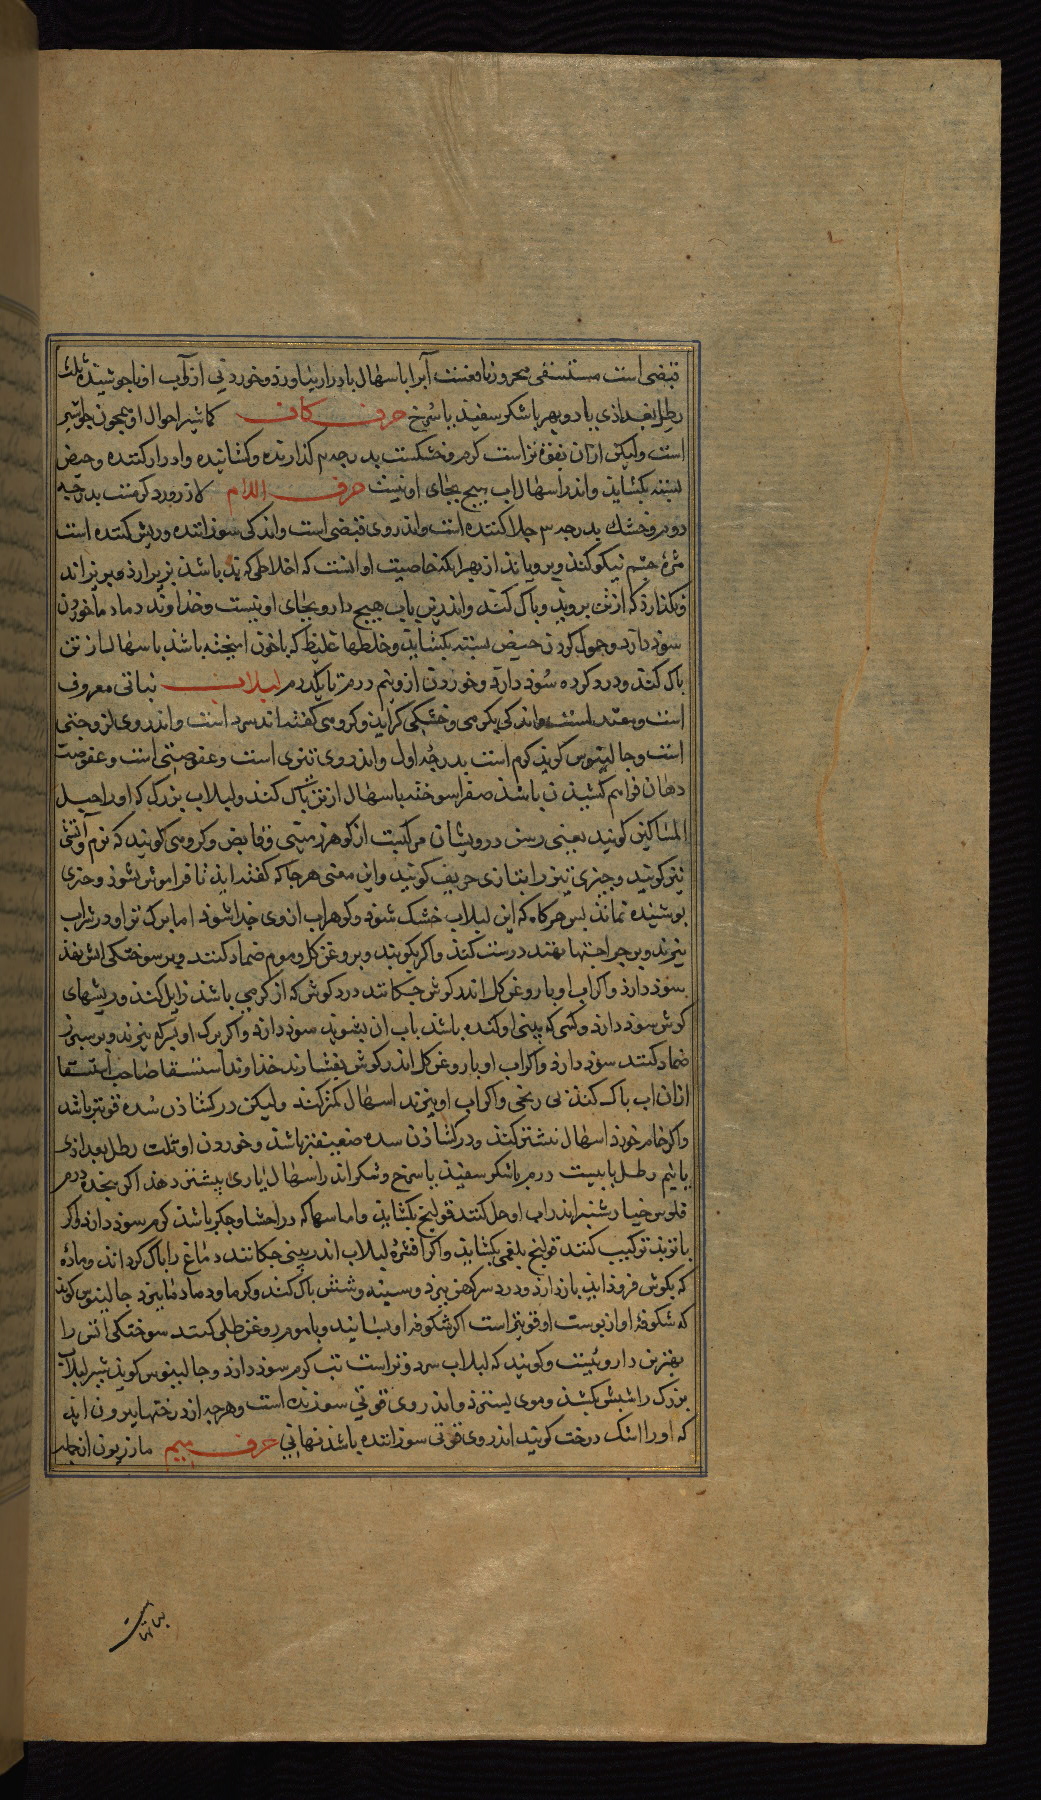 قبضی است مستسقی محرور را منفعت آبرا باسهال بادرار بیاورد و خوردنی از آب او ناجوشیده ثلث
رطل بغدادی با دو بهر با شکر سفید یا سرخ حرف کاف کماشیر احوال او همچون جاوشیر
است ولیکن ازان بقوة تر است کرم و خشکست بدرجه ۳ کذارنده و کشاینده و ادرار کننده و حیض
بسته بکشاید و اندر اسهال اب هیچ بجای او نیست حرف اللام لازورد کرمست بدرجه
دوم و خشک بدرجه ۳ جلا کننده است و اندروی قبضی است و اندکی سوزاننده و ریش کننده است
مژهٔ چشم نیکو کند و برویاند از بهر انکه خاصیت او انست که اخلاطی که بد باشد بزیر ارد و بریزاند
و بکذارد که ازتن بروید و پاک کند و اندرین باب هیچ دارو بجای او نیست و خداوند دمادم را خوردن
سود دارد و حمول کردن حیض بسته بکشاید و خلطهاء غلیظ که باخون امیخته باشد باسهال از تن
پاک کند و درد کرده سود دارد و خوردن ازو نیم درم تا یکدرم لبلاب نباتی معروف
است و معتدلست و اندکی بکرمی و خشکی کراید و کروهی کفته اند سرد است و اندروی لزوجتی
است و جالینوس کوید کرم است بدرجه اول و اندروی تیزی است و عفوصتی است و عفوصت
دهان فراهم کشیدن باشد صفرا سوخته باسهال از تن پاک کند و لبلاب بزرک که اورا حبل
المساکین کویند یعنی رسن درویشان مرکبست از کوهر زمینی و قابض و کروهی کویند که نرم و آتشی
تیز کویند و چیزی تیز را بتازی حریف کویند و این معنی هرجا که کفته اید تا فراموش نشود و چیزی
پوشیده نماند پس هرکاه که این لبلاب خشک شود و کوهر اب ازوی جدا شود اما برک تر او در شراب
بپزند و بر جراحتها نهند درست کند و اکر بکوبند و بروغن کل و موم ضماد کنند و بر سوختکی اتش نهند
سود دارد و اکر اب او با روغن کل اندر کوش چکانند درد کوش که از کرمی باشد زایل کند و ریشهای
کوش سود دارد و کسی که بینی او کنده باشد باب ان بشویند سود دارد و اکر برک او بسرکه بپزند و بر سپرز
ضماد کنند سود دارد و اکر اب او با روغن کل اندر کوش بفشارند خداوند استسقا صاحب استسقا
ازان اب پاک کند بی رنجی و اکر اب او بپزند اسهال کمتر کند ولیکن در کشادن سده قویتر باشد
و اکر خام خورند اسهال بیشتر کند و در کشادن سده ضعیفتر باشد و خوردن او ثلث رطل بغدادی
یا نیم رطل با بیست درم با شکر سفید یا سرخ و شکر اندر اسهال یاری بیشتر دهد اکر پنجده درم
فلوس خیار شنبر اندر اب او حل کنند قولنج بکشاید و اماسها که در احشا و جکر باشد کرم سود دارد و اکر
با تربد ترکیب کنند قولنج بلغمی بکشاید و اکر افشرهٔ لبلاب اندر بینی چکانند دماغ را پاک کرداند و ماده
که بکوش فروداید بازدارد و درد سر کهن ببرد و سینه و شش پاک کند و کرما و دمادم را ببرد جالینوس کوید
که شکوفه او از پوست او قویتر است اکر شکوفه او بسایند و با موم روغن طلی کنند سوختکی اتش را
بهترین داروئیست و کویند که لبلاب سرد و تر است تب کرم سود دارد و جالینوس کوید شیر لبلاب
بزرک را شپش بکشد و موی بسترد و اندروی قوتی سوزنده است و هرچه از درختها بیرون اید
که اورا اشک درخت کویند اندروی قوتی سوزاننده باشد نهانی حرف میم مازریون از جمله
نباتات